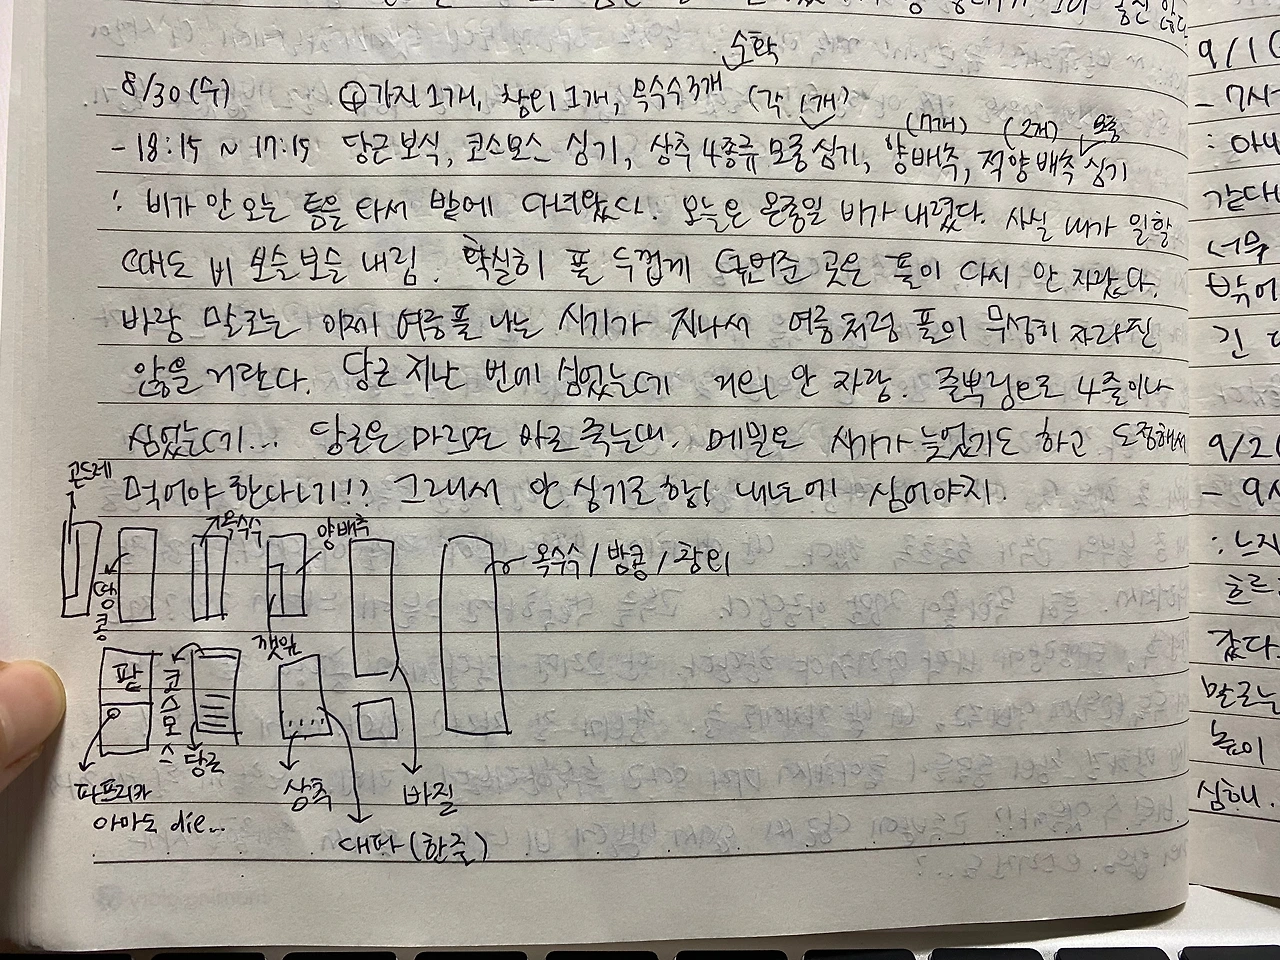 수확
8/30 (수) ⊕ 가지 1개, 참외 1개, 옥수수 3개 (각 1개)
(7개) (2개) 모종
- 18:15 ~ 17:15 당근 보식, 코스모스 심기, 상추 4종류 모종 심기, 양배추, 적양배추 심기
: 비가 안 오는 틈을 타서 밭에 다녀왔다. 오늘은 온종일 비가 내렸다. 사실 내가 일할
때도 비 보슬보슬 내림. 확실히 풀 두껍게 덮어준 곳은 풀이 다시 안 자랐다.
바랑 말로는 이제 여름풀 나는 시기가 지나서 여름처럼 풀이 무성히 자라진
않을 거란다. 당근 지난 번에 심었는데 거의 안 자람. 줄뿌림으로 4줄이나
심었는데... 당근은 마르면 바로 죽는대. 메밀은 시기가 늦었기도 하고 도정해서
먹어야 한다네!? 그래서 안 심기로 함! 내년에 심어야지.
곤드레
옥수수
양배추
옥수수 / 밤콩 / 참외
땅콩
깻잎
팥
코스모스
당근
파프리카
아마도 die...
상추
바질
대파 (한줄)
9/10
- 7시
: 아
같대
너무
밖에
긴
9/20
- 9시
: 느지
흐르
갔다.
말로는
높이
심해.
morning glory